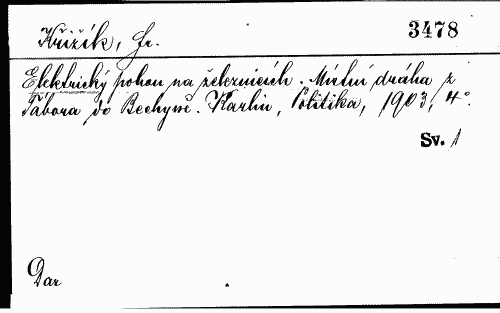 Křižík, Fr. 3478
Elektrický pohon na železnicích. Místní dráha z
Tábora do Bechyně. Karlín, Politika, 1903, 4°.
Sv. 1
Dar